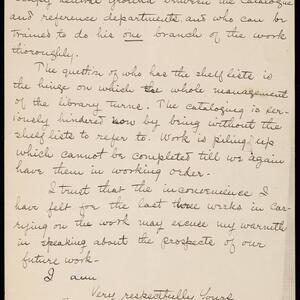 neutral ground between the catalogue
and reference departments, and who can be
trained to do his one branch of the work
thoroughly.
The question of who has the shelf lists is
the hinge on which the whole management
of the library turns. The cataloguing is ser-
iously hindered now by being without the
shelf lists to refer to. Work is piling up
which cannot be completed till we again
have them in working order.
I trust that the inconvenience I
have felt for the last three weeks in car-
rying on the work may excuse my warmth
in speaking about the prospects of our
future work-
I am
Very respectfully Yours